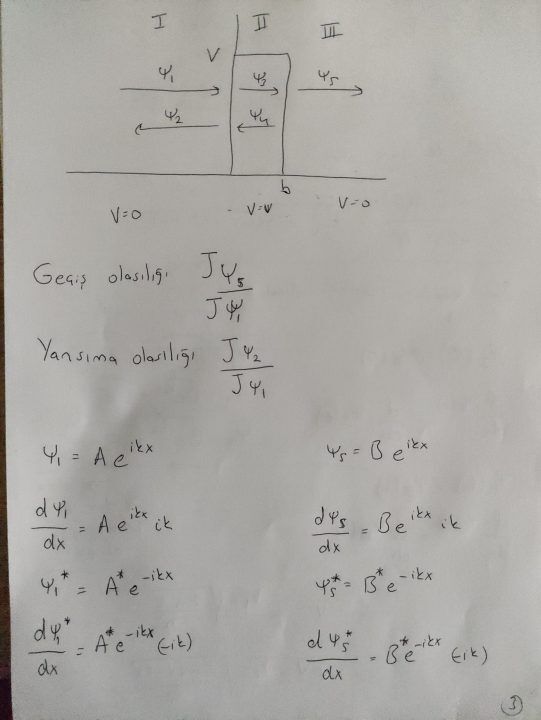 I II III
V
ψ₁ ψ₃ ψ₅
ψ₂ ψ₄
b
V=0 V=V V=0
Geçiş olasılığı Jψ₅ / Jψ₁
Yansıma olasılığı Jψ₂ / Jψ₁
ψ₁ = A e^{ikx} ψ₅ = B e^{ikx}
dψ₁/dx = A e^{ikx} ik dψ₅/dx = B e^{ikx} ik
ψ₁* = A* e^{-ikx} ψ₅* = B* e^{-ikx}
dψ₁*/dx = A* e^{-ikx} (-ik) dψ₅*/dx = B* e^{-ikx} (-ik)
3